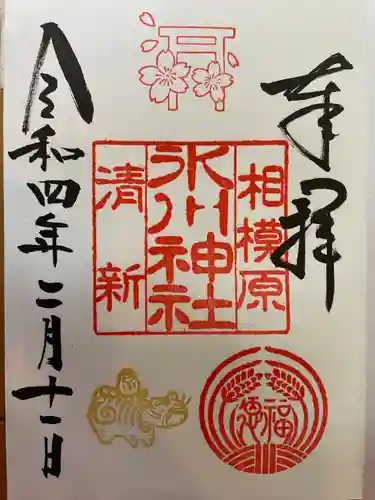 奉拝
相模原
氷川神社
清新
福
令和四年二月十一日